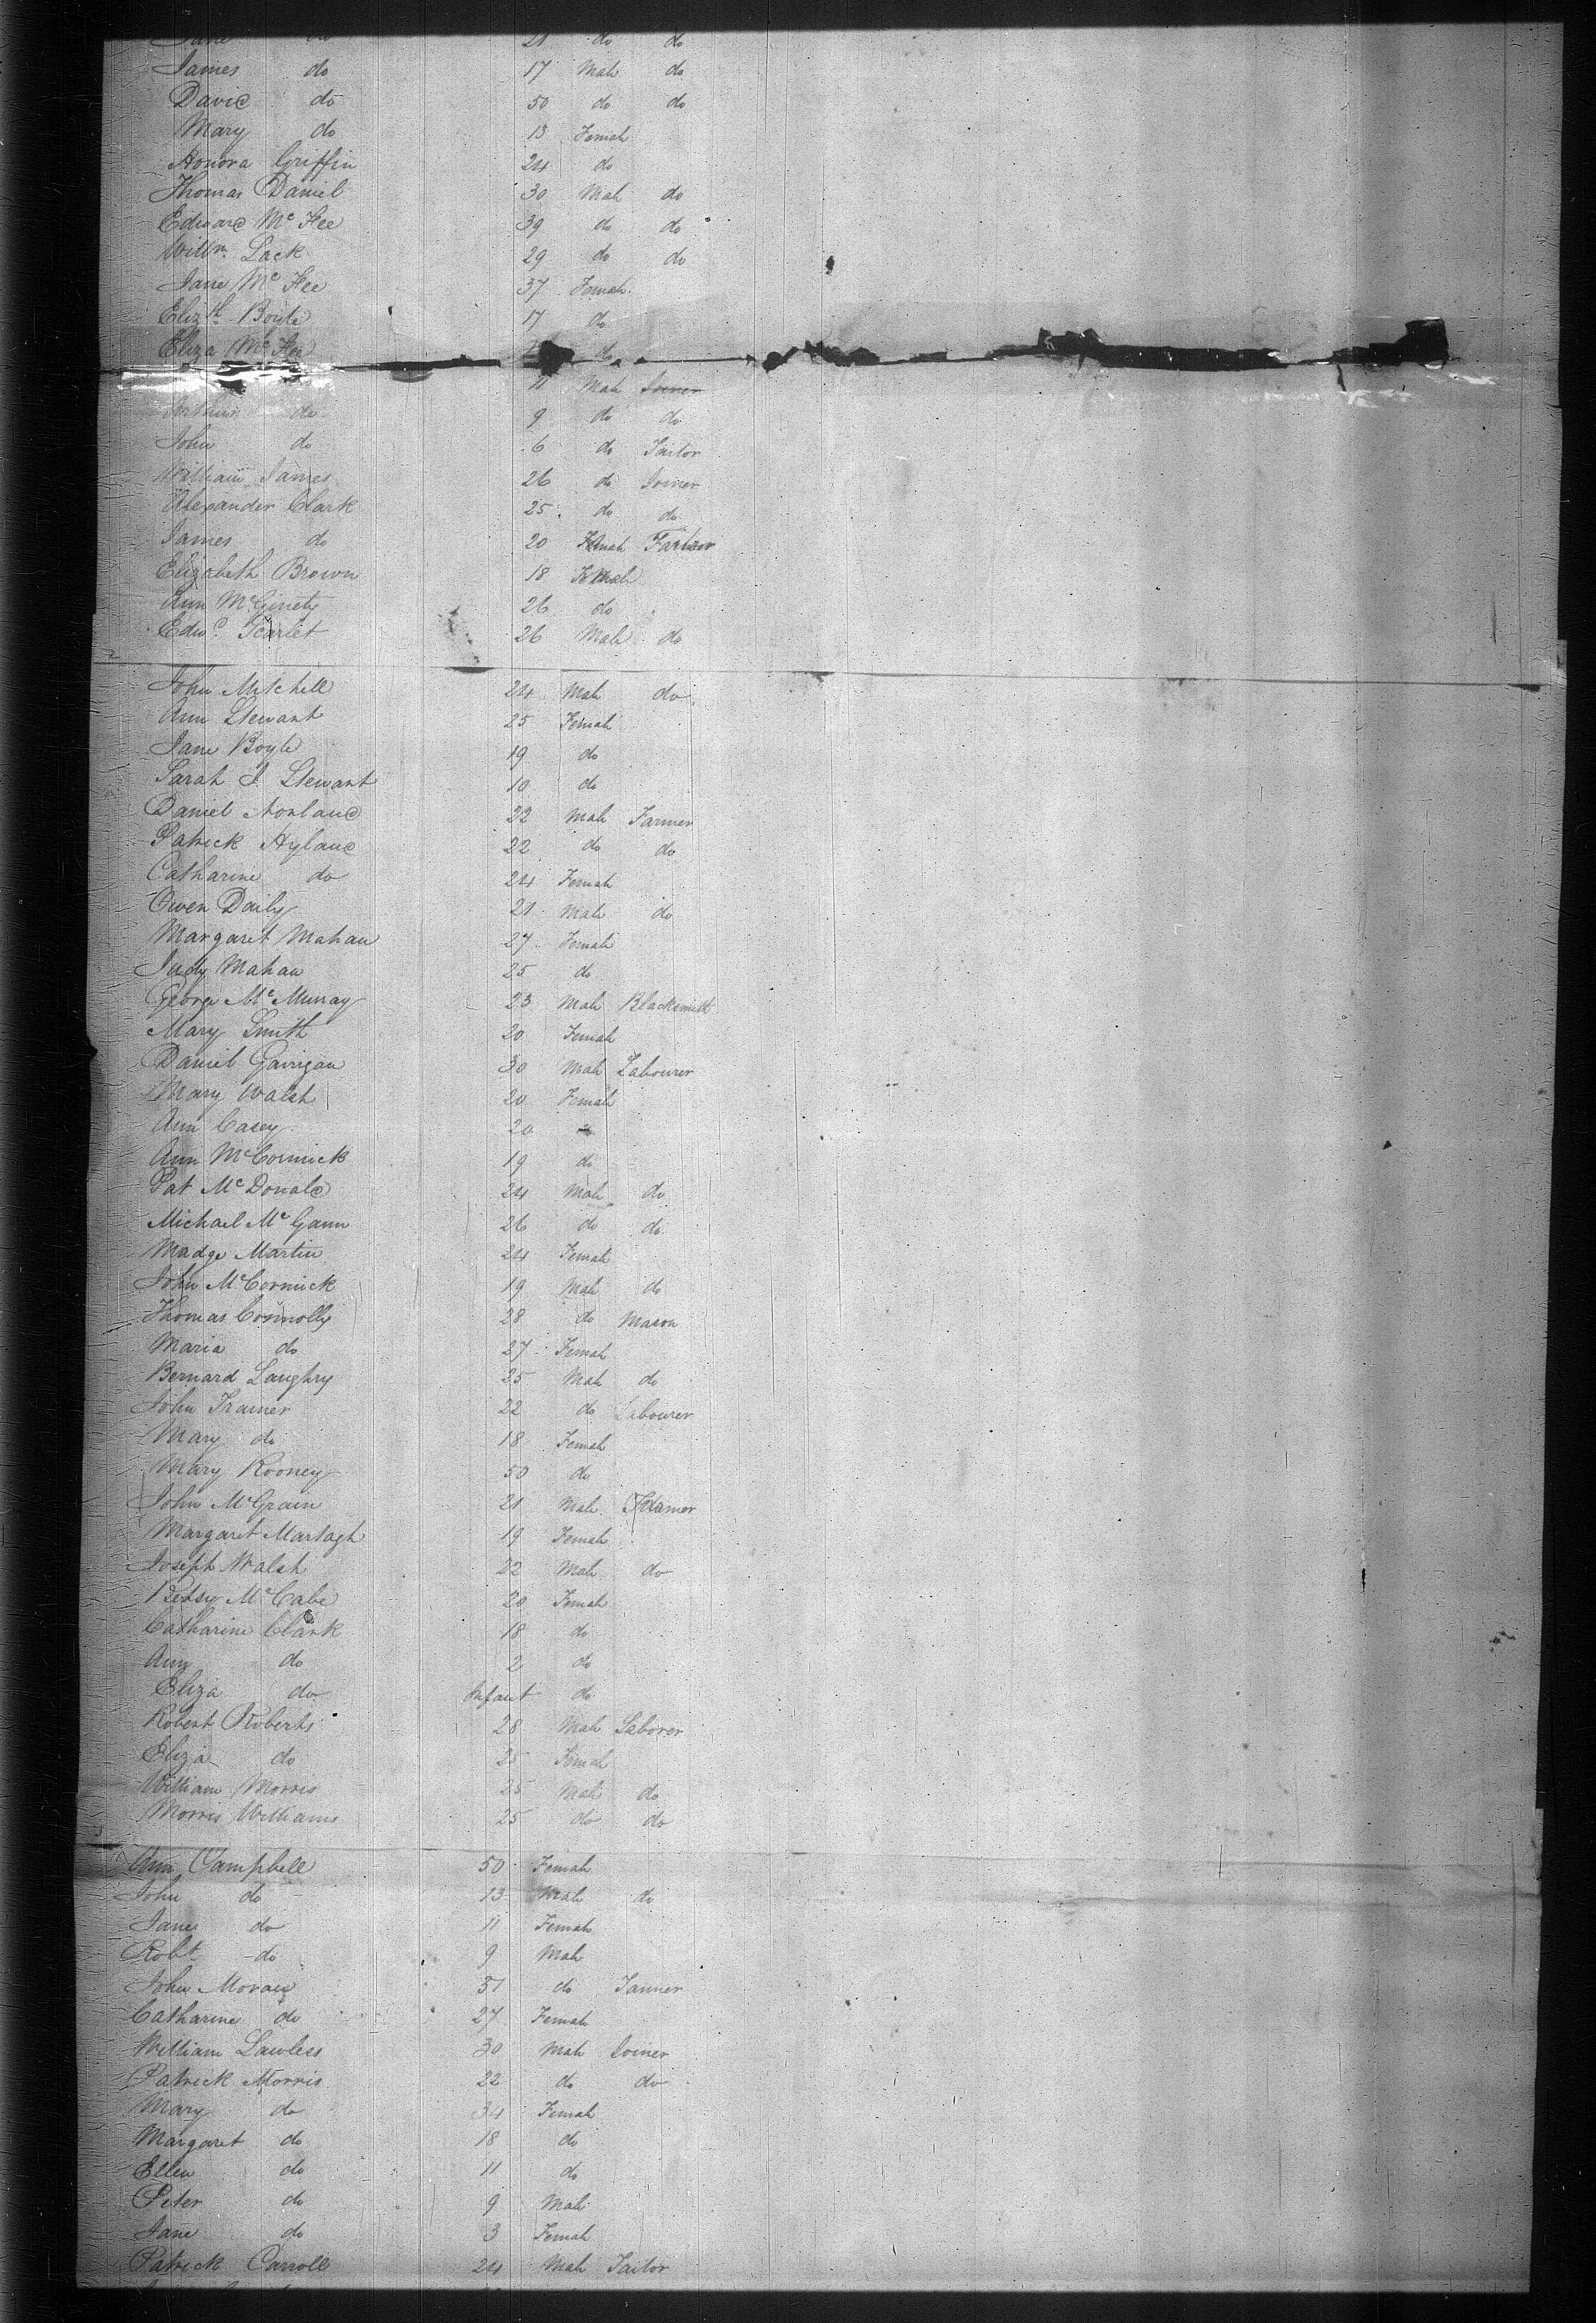 Jane do 21 do do
James do 17 Male do
David do 50 do do
Mary do 13 Female
Honora Griffin 24 do
Thomas Daniel 30 Male do
Edward Mc Fee 39 do do
Willm. Lack 29 do do
Jane Mc Fee 37 Female
Elizth. Boyle 17 do
Eliza Mc Fee do
11 Male Joiner
Arthur do 9 do do
John do 6 do Tailor
William James 26 do Joiner
Alexander Clark 25 do do
James do 20 Farmer
Elizabeth Brown 18 Female
Ann McGinety 26 do
Edwd. Scarlet 26 Male do
John Mitchell 24 Male do
Ann Stewart 25 Female
Jane Boyle 19 do
Sarah J Stewart 10 do
Daniel Norland 22 Male Farmer
Patrick Hyland 22 do do
Catharine do 24 Female
Owen Daily 21 Male do
Margaret Mahan 27 Female
Judy Mahan 25 do
George Mc Murray 23 Male Blacksmith
Mary Smith 20 Female
Daniel Garrigan 30 Male Labourer
Mary Walsh 20 Female
Ann Casey 20
Ann McCormick 19 do
Pat Mc Donald 24 Male do
Michael Mc Gann 26 do do
Madge Martin 24 Female
John McCormick 19 Male do
Thomas Connolly 28 do Mason
Maria do 27 Female
Bernard Laughry 25 Male do
John Trainer 22 do Labourer
Mary do 18 Female
Mary Rooney 50 do
John McGrain 21 Male Farmer
Margaret Martagh 19 Female
Joseph Walsh 22 Male do
Betsy McCabe 20 Female
Catharine Clark 18 do
Ann do 2 do
Eliza do Infant do
Robert Roberts 28 Male Laborer
Eliza do 25 Female
William Morris 25 Male do
Morris Williams 25 do do
Ann Campbell 50 Female
John do 13 Male do
Jane do 11 Female
Robt. do 9 Male
John Moran 31 do Tanner
Catharine do 27 Female
William Lawless 30 Male Joiner
Patrick Morris 22 do do
Mary do 34 Female
Margaret do 18 do
Ellen do 11 do
Peter do 9 Male
Jane do 3 Female
Patrick Carroll 24 Male Tailor